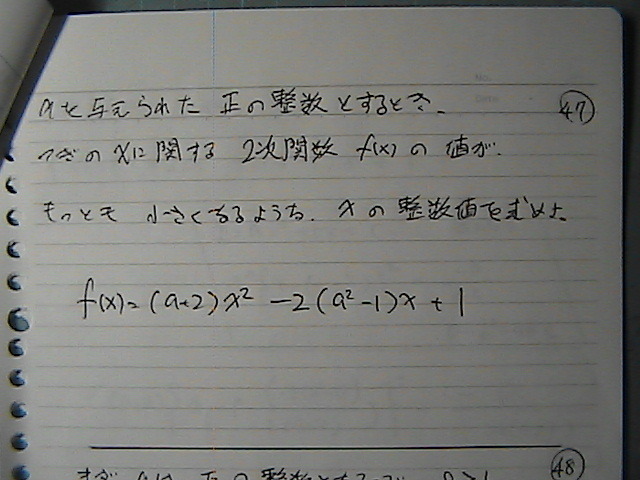 aを与えられた 正の整数とするとき、 ㊼
つぎの xに関する 2次関数 f(x) の 値が、
もっとも 小さくなるような、 xの 整数値を求めよ。
f(x)=(a+2)x² -2(a²-1)x + 1
㊽
まず aは 正の整数